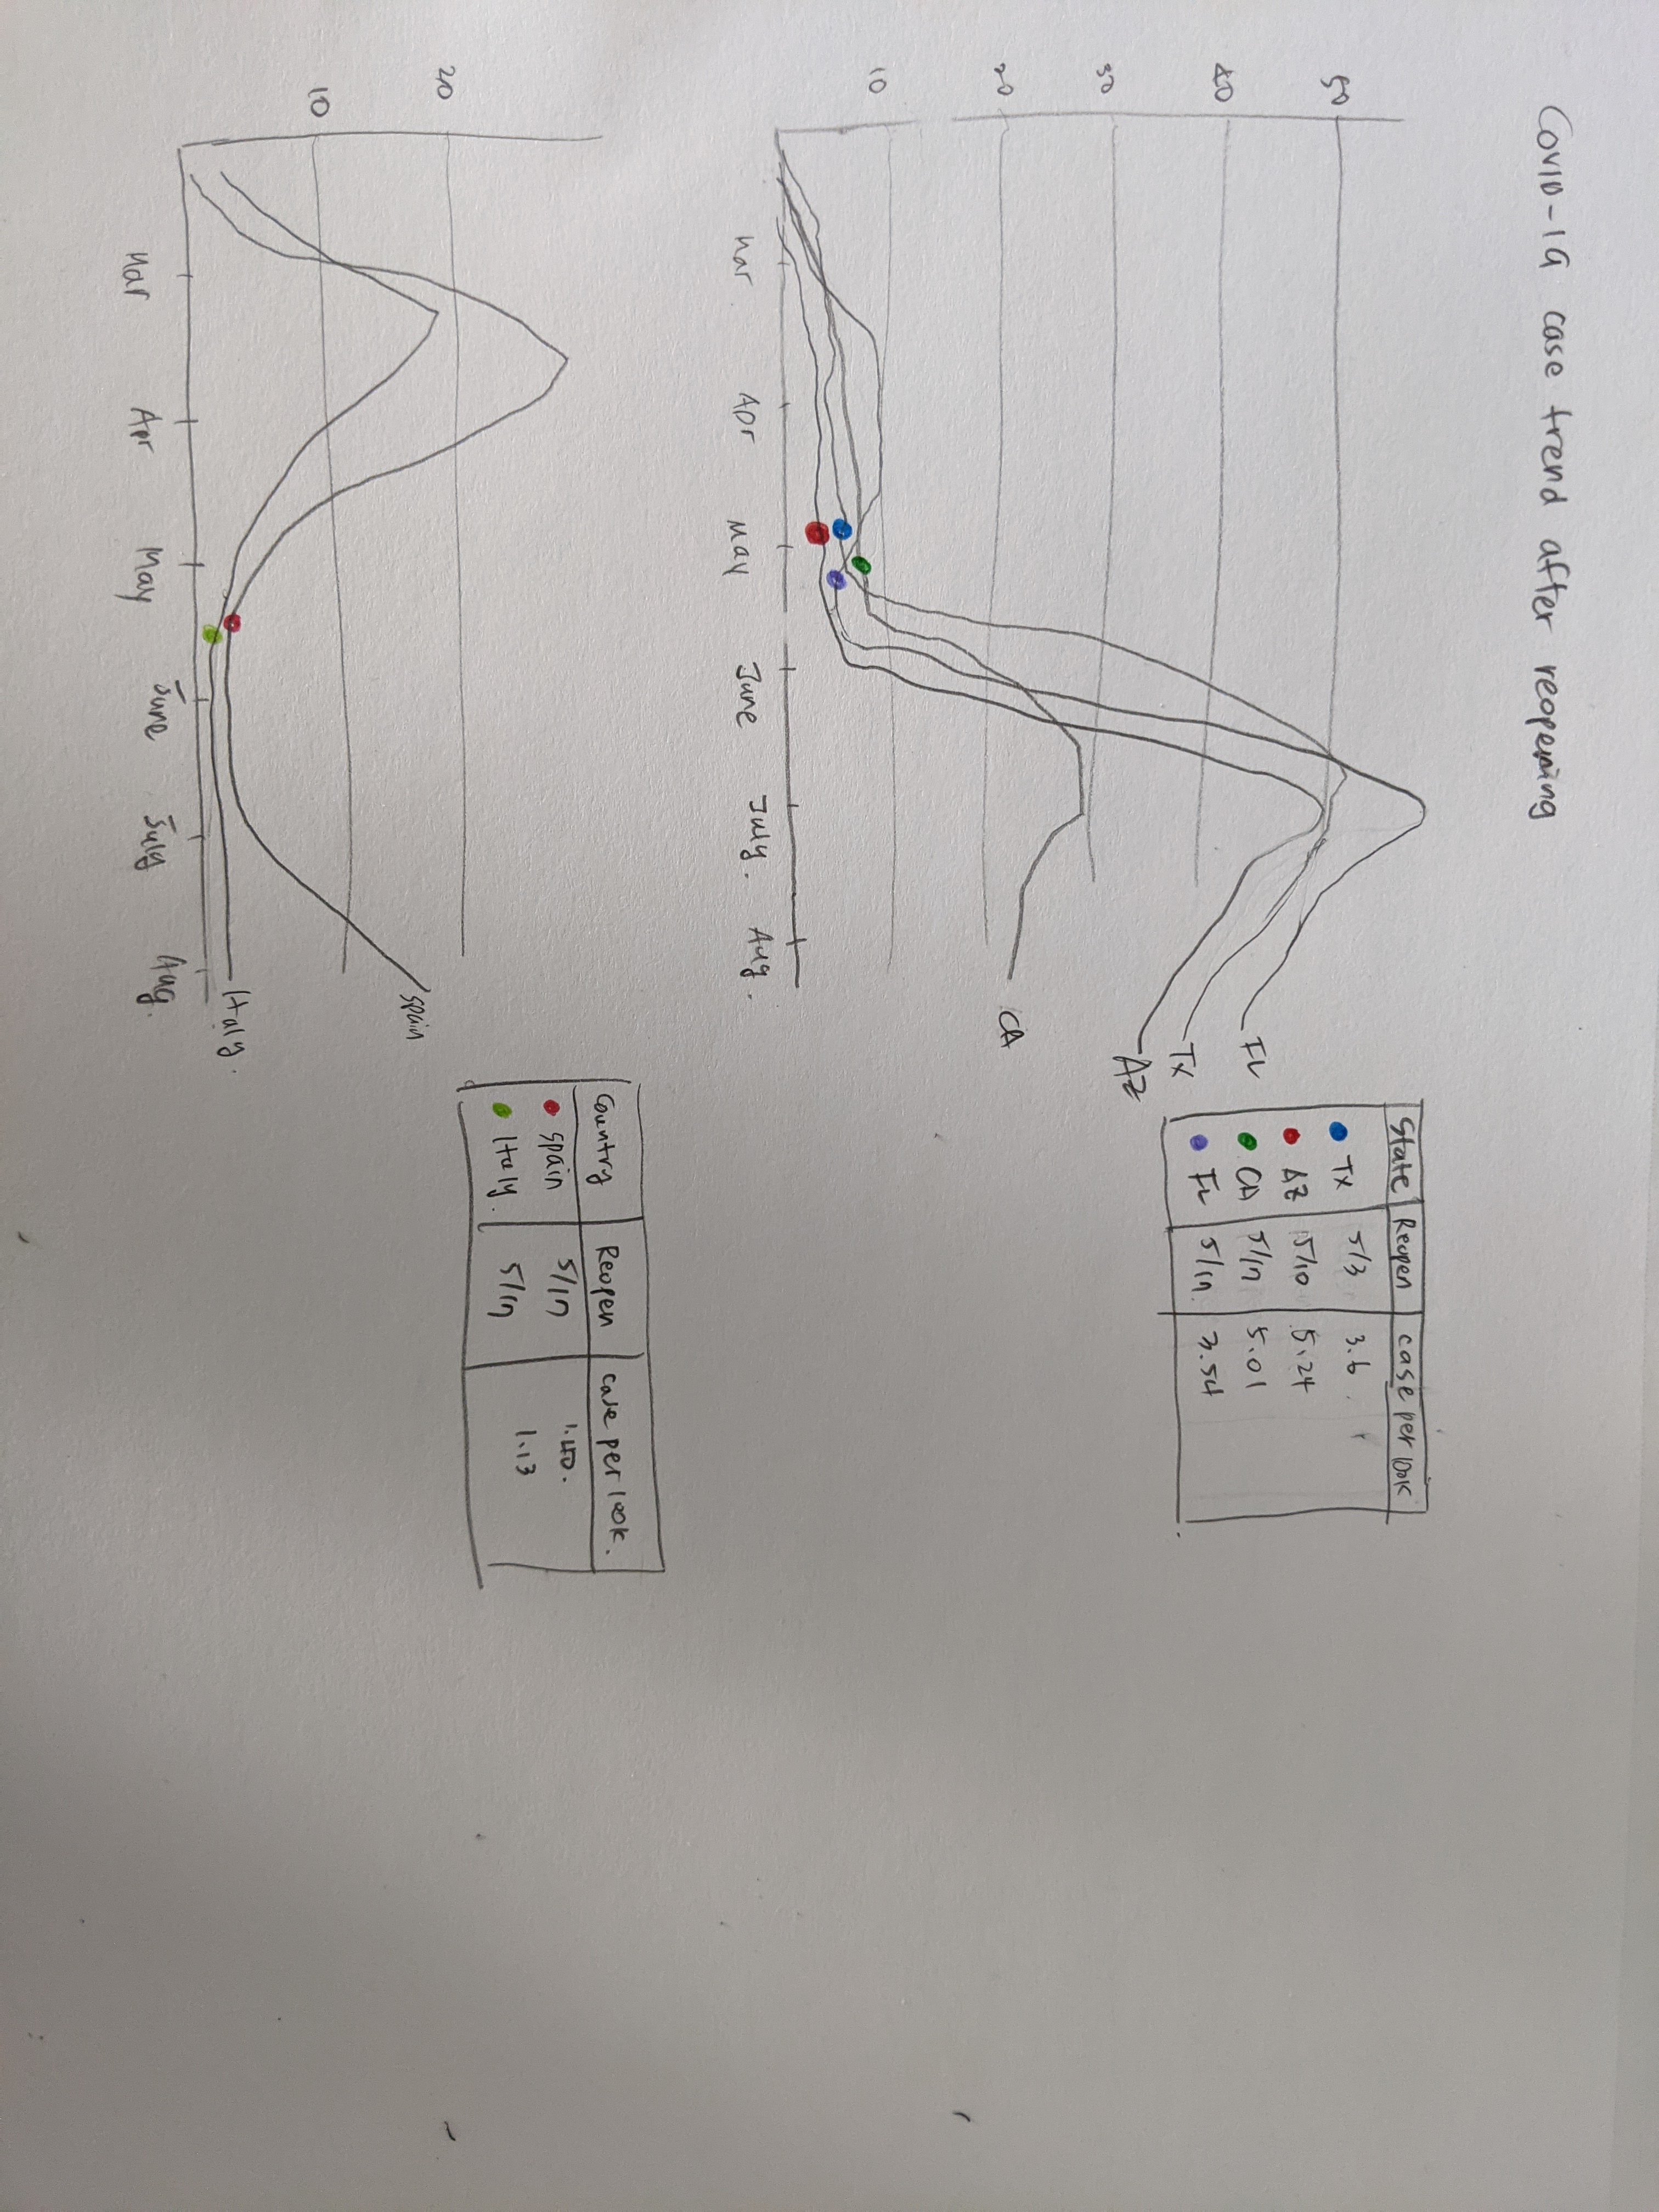 COVID-19 case trend after reopening
50
40
30
20
10
Mar
Apr
May
June
July.
Aug.
FL
TX
AZ
CA
State Reopen case per 100k
TX 5/3 3.6
AZ 5/10 5.24
CA 5/17 5.01
FL 5/17. 3.54
20
10
Mar
Apr
May
June
July
Aug.
Spain
Italy.
Country Reopen case per 100k.
Spain 5/17 1.40.
Italy. 5/17 1.13